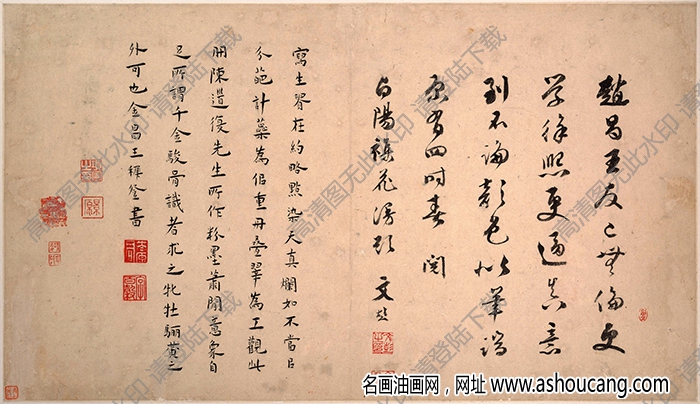 趙昌王友已無倫更
學徐熙更逼真意
到不論顏色似筆端
原有四時春 閱
白陽雜花漫題 文彭
寫生在約略點染天真爛如不當以
分葩計蕊為重丹疊翠為工觀此
冊陳道復先生所作粉墨蕭閒意象自
足所謂千金駿骨識者求之牝牡驪黃之
外可也金昌王穉登書
高清图无此水印 请登陆下载
名画油画网，网址 www.ashoucang.com